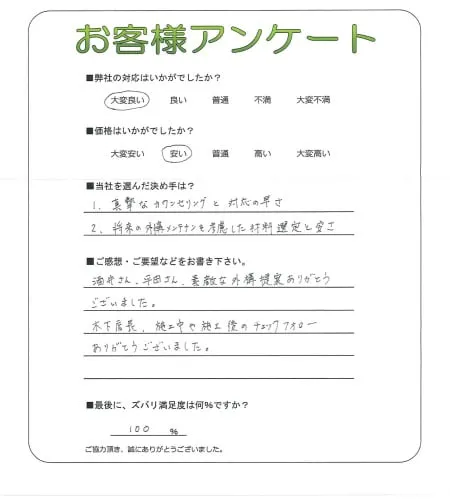 お客様アンケート
■弊社の対応はいかがでしたか?
大変良い 良い 普通 不満 大変不満
■価格はいかがでしたか?
大変安い 安い 普通 高い 大変高い
■当社を選んだ決め手は?
1、真摯なカウンセリングと対応の早さ
2、将来の外構メンテナンスも考慮した材料選定と安さ
■ご感想・ご要望などをお書き下さい。
酒井さん、平田さん、素敵な外構提案ありがとう
ございました。
木下店長、施工中や施工後のチェックフォロー
ありがとうございました。
■最後に、ズバリ満足度は何%ですか?
100 %
ご協力頂き、誠にありがとうございました。